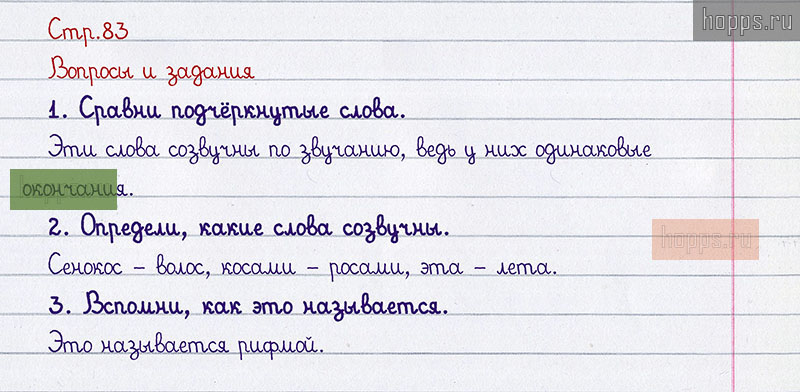 hopps.ru
Стр.83
Вопросы и задания
1. Сравни подчёркнутые слова.
Эти слова созвучны по звучанию, ведь у них одинаковые
окончания.
2. Определи, какие слова созвучны.
hopps.ru
Сенокос – волос, косами – росами, эта – лета.
3. Вспомни, как это называется.
Это называется рифмой.